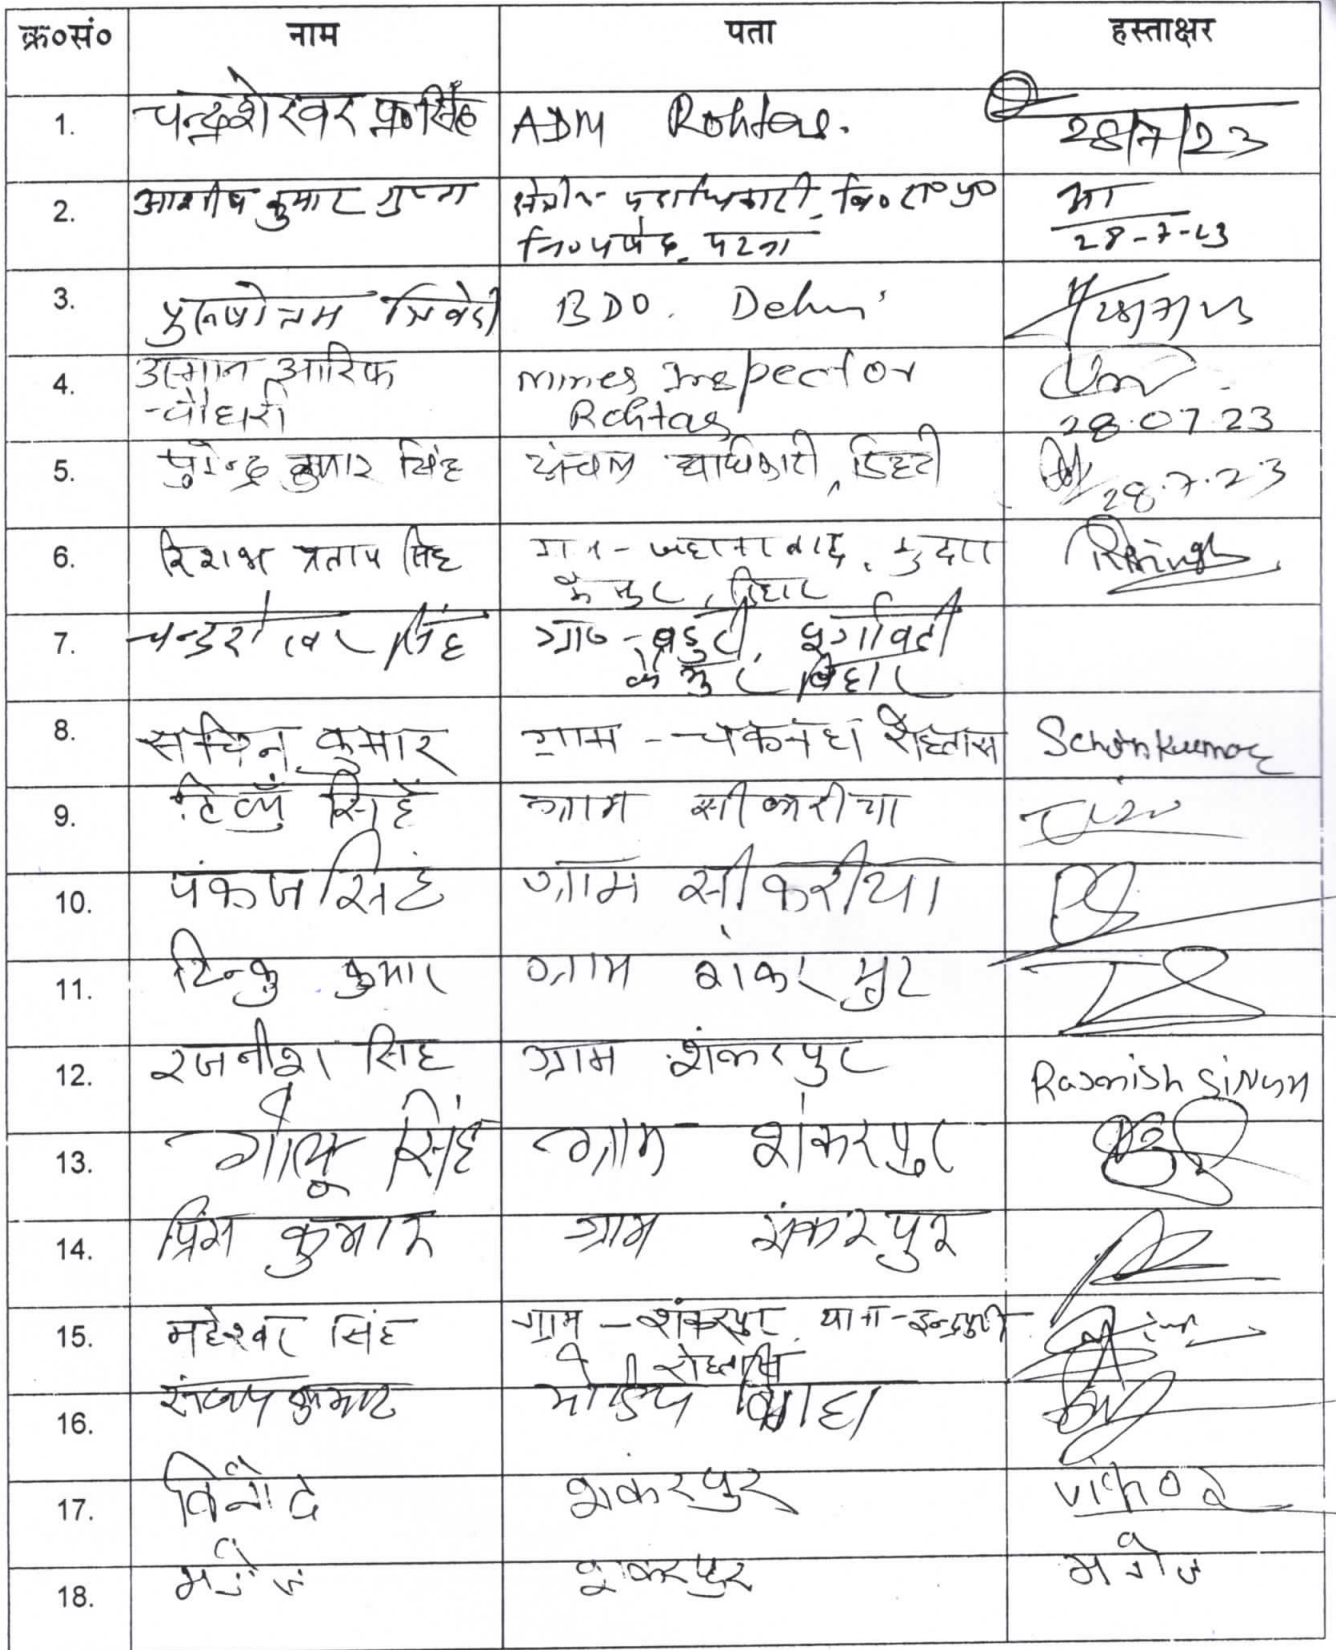 क्र०सं० नाम पता हस्ताक्षर
1. चन्द्रशेखर प्र० सिंह ADM Rohtas. 28/7/23
2. आशीष कुमार गुप्ता क्षेत्रीय पदाधिकारी, बि० रा० प्र०
नि० पर्षद, पटना
28-7-23
3. पुरुषोत्तम त्रिवेदी BDO. Dehri 28/7/23
4. उस्मान आरिफ
चौधरी
Mines Inspector
Rohtas
28.07.23
5. कुमार सिंह अंचल अधिकारी, डिहरी 28.7.23
6. रिशभ प्रताप सिंह ग्राम - जहानाबाद, कुदरा
कैमुर, बिहार
RSingh
7. सिंह ग्राम -
कैमुर, बिहार
8. सचिन कुमार ग्राम - चकनहा रोहतास Schinkumar
9. सिहं ग्राम सीकरीया
10. पंकज सिहं ग्राम सीकरीया
11. टिन्कु कुमार ग्राम शंकरपुर
12. रजनीश सिंह ग्राम शंकरपुर Rajnish Singh
13. गोलू सिंह ग्राम शंकरपुर
14. प्रिंस कुमार ग्राम शंकरपुर
15. महेश्वर सिंह ग्राम - शंकरपुर, थाना - इन्द्रपुरी
रोहतास
16. संजय कुमार
17. विनोद शंकरपुर Vinod
18. मनोज शंकरपुर मनोज